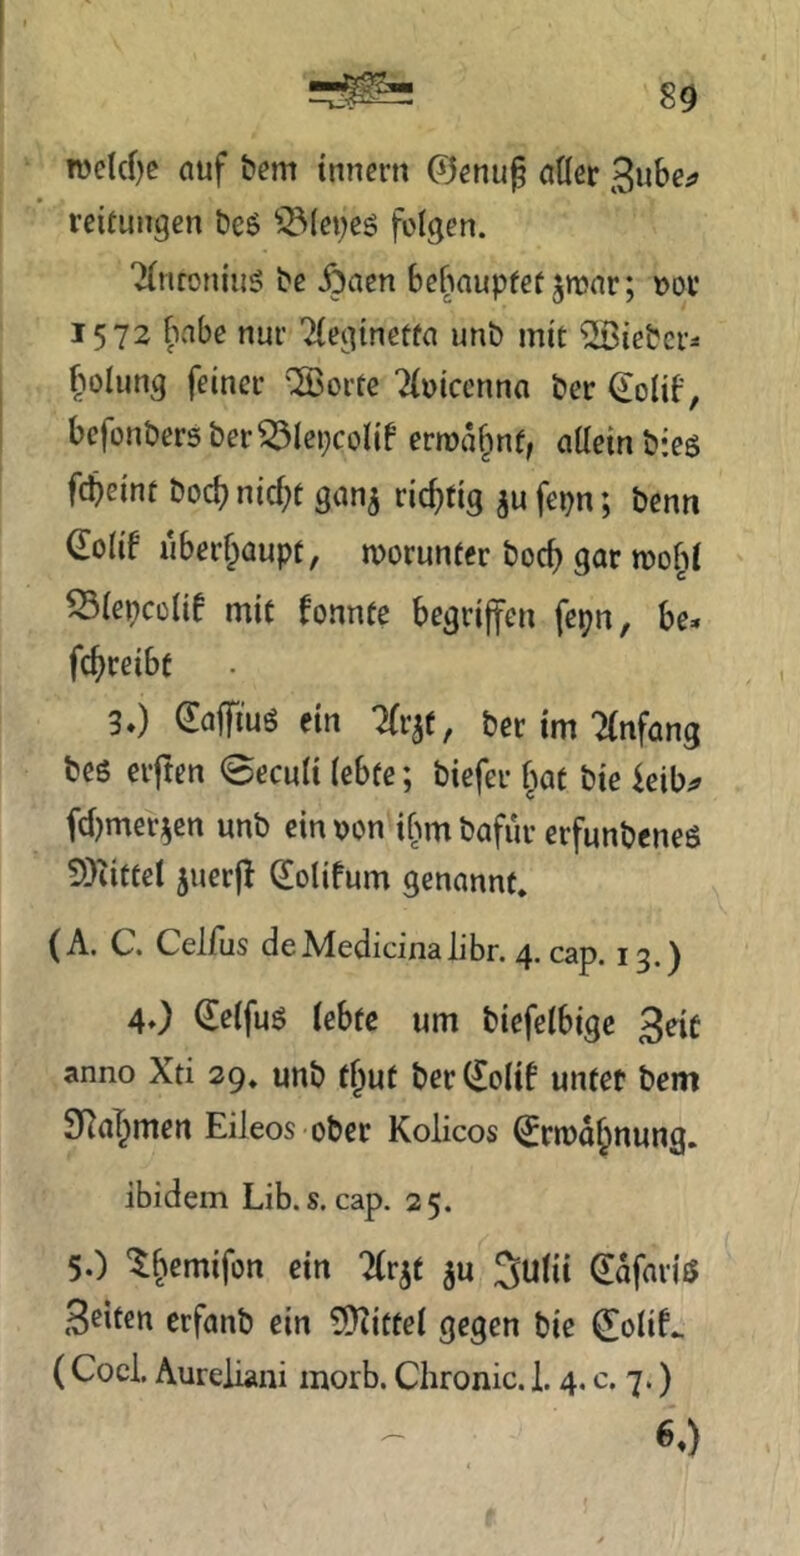 89
welche auf dem innern Genuß aller Zube-
reitungen des Bleyes folgen.
Antonius de Haen behauptet zwar; vor
1572 habe nur Aeginetta und mit Wieder-
holung seiner Worte Avicenna der Colik,
besonders der Bleycolik erwähnt, allein dies
scheint doch nicht ganz richtig zu seyn; denn
Colik überhaupt, worunter doch gar wohl
Bleycolik mit konnte begriffen seyn, be-
schreibt
3.) Cassius ein Arzt, der im Anfang
des ersten Seculi lebte; dieser hat die Leib-
schmerzen und ein von ihm dafür erfundenes
Mittel zuerst Colikum genannt.
(A. C. Celsus de Medicina libr. 4. cap. 13.)
4.) Celsus lebte um dieselbige Zeit
anno Xti 29. und thut der Colik unter dem
Nahmen Eileos oder Kolicos Erwähnung.
ibidem Lib. s. cap. 25.
5.) Themison ein Arzt zu Julii Cäsaris
Zeiten erfand ein Mittel gegen die Colik.
(Cocl. Aureliani morb. Chronic. l. 4. c. 7.)
6.)